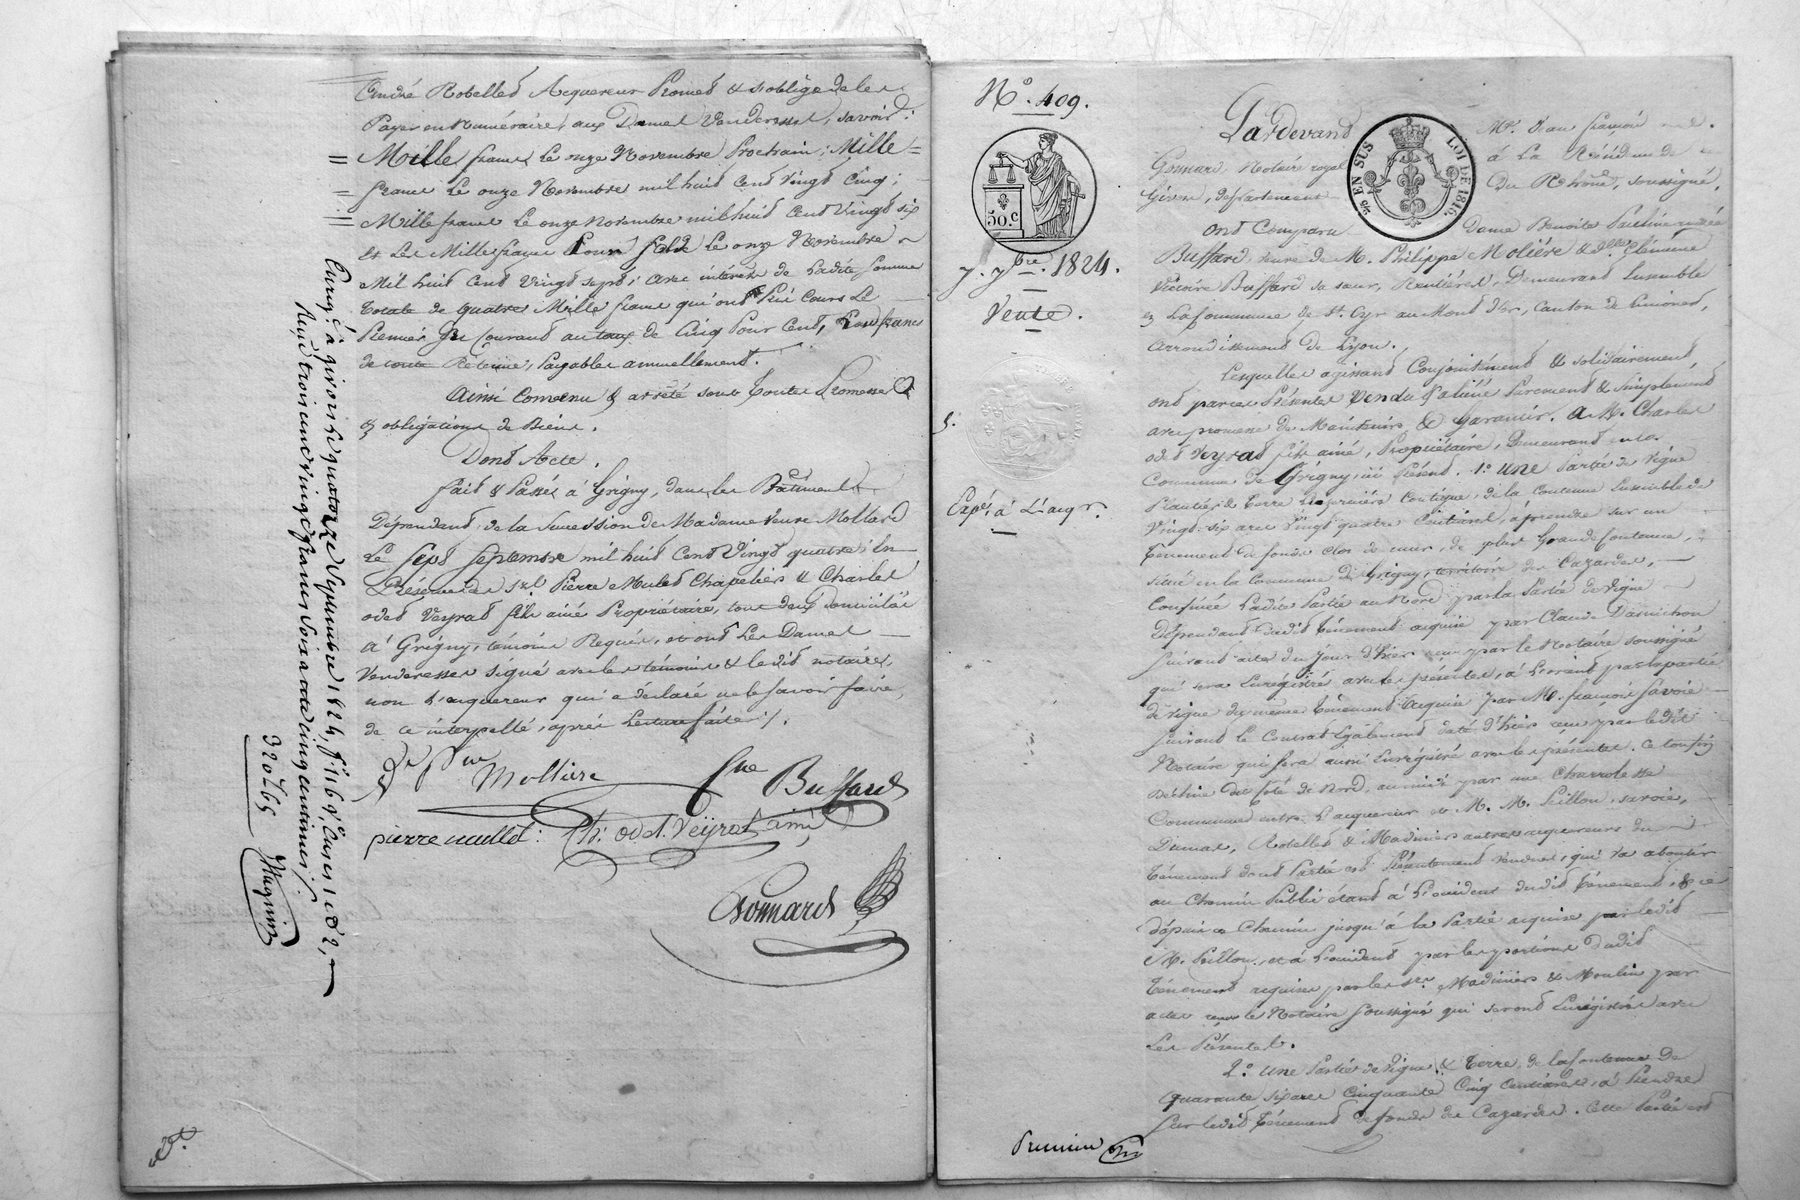 André Robelles Acquereur Promet & s'oblige de les
Payer en Numéraire, aux Dames Venderesses, savoir:
Mille francs Le onze Novembre Prochain; Mille
francs Le onze Novembre mil huit Cent Vingt Cinq;
Mille francs Le onze Novembre mil huit Cent Vingt six
et Les Mille francs Pour Solde Le onze Novembre
Mil huit Cent Vingt sept; avec intérêts de Ladite somme
Totale de quatre Mille francs qui ont Pris Cours Le
Premier du Courant au taux de Cinq Pour Cent, francs
de toute Retenue, Payables annuellement.
Ainsi Convenu & arrêté sous Toutes Promesses
& obligations de Biens.
Dont Acte.
fait & Passé à Grigny, dans les Bâtiments
Dépendant de la Succession de Madame Veuve Mollard
Le Sept Septembre mil huit Cent Vingt quatre; En
Présence de srs. Pierre Mulet Chapelier & Charles
odet Veyrat fils ainé Propriétaire, tous deux Domiciliés
à Grigny, témoins Requis, et ont Les Dames
Venderesses signé avec les témoins & ledit notaire,
non L'acquereur qui a déclaré ne le savoir faire,
de ce interpellé, après Lecture faite ./.
Molliere
Buffard
pierre mullet: Ch. odet. Veyrat ainé
Gonnard
Enrg.é à givors le quatorze Septembre 1824, f.o 116 v.o Cases 1 et 2,
Reçu trois cent vingt francs soixante cinq centimes ./.
320f 65
N.o 409.
50.c
7. 7bre. 1824.
Vente.
5.
Expé. à L'acqr.
Pardevant Me. Jean françois
EN SUS
LOI DE 1816.
Gonnard Notaire royal à La Résidence de
Givors, département Du Rhône, soussigné,
ont Comparu Dame Benoite Pauline
Buffard, veuve de M. Philippe Molière & Dlle. Clémence
Victoire Buffard sa sœur, Rentières, Demeurant Ensemble
en La Commune de St. Cyr au Mont d'or, Canton de Limonest,
arrondissement de Lyon.
Lesquelles agissant Conjointement & solidairement,
ont par ces Présentes Vendu & aliéné Purement & simplement
avec promesse de Maintenir & Garantir. A M. Charles
odet Veyrat fils ainé, Propriétaire, Demeurant en la
Commune de Grigny, ici Présent. 1.o une Partie de Vigne
Plantée & Terre Hermées Contigue, de la Contenue Ensemble de
Vingt six ares Vingt quatre Centiares, à prendre sur un
tènement de fonds clos de murs, de plus Grande Contenue,
situé en la Commune de Grigny, territoire des Cazardes,
Confinée Ladite Partie au Nord par la Partie de Vigne
Dépendant dudit tènement acquise par Claude
suivant acte du jour d'hier reçu par le Notaire soussigné
qui sera Enregistré avec les présentes, à L'orient par la partie
de vigne du même tènement acquise par M. françois Savoie
suivant le Contrat également daté d'hier reçu par ledit
Notaire qui sera aussi Enregistré avec les présentes.
du Côté de Nord, au midi par une Charrolesse
Commune entre L'acquereur et M. M. Peillon, savoie,
Dumas, Robelles & Madiniers autres acquereurs du
tènement dont Partie est Présentement vendue, qui va aboutir
au Chemin Public étant à L'occident dudit tènement, & ce
depuis ce Chemin jusqu'à la Partie acquise par ledit
M. Peillon, et à L'occident par les portions dudit
tènement acquises par les srs. Madiniers & Moulin par
actes reçus le Notaire soussigné qui seront Enregistrés avec
Les Présentes.
2.o une Partie de Vigne & Terre, de la Contenue de
Quarante six ares Cinquante Cinq Centiares, à Prendre
sur ledit tènement de fonds des Cazardes. Cette Partie est
Premier